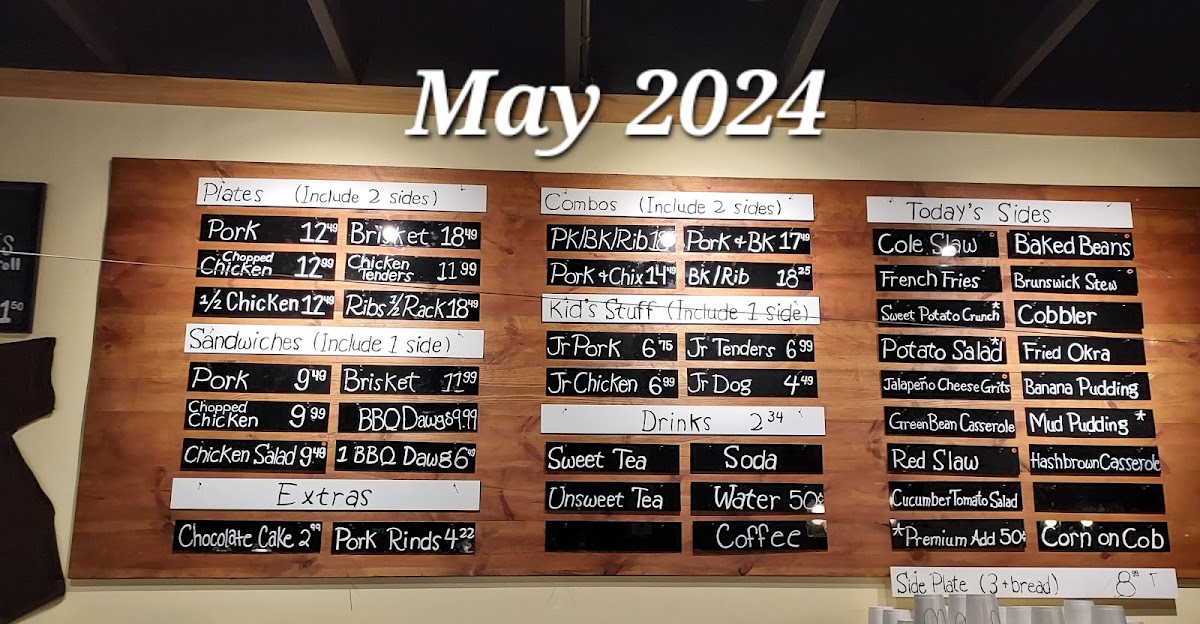 May 2024
Plates (Include 2 sides)
Pork 12 49
Brisket 18 49
Chopped
Chicken 12 99
Chicken
Tenders 11.99
1/2 Chicken 12 49
Ribs 1/2 Rack 18 49
Sandwiches (Include 1 side)
Pork 9 49
Brisket 11 99
Chopped
Chicken 9 99
BBQ Dawgs 9.99
Chicken Salad 9 49
1 BBQ Dawg 6 49
Extras
Chocolate Cake 2 99
Pork Rinds 4 22
Combos (Include 2 sides)
PK/BK/Rib
Pork + BK 17 49
Pork + Chix 14 49
BK/Rib 18 25
Kid's Stuff (Include 1 side)
Jr Pork 6 75
Jr Tenders 6 99
Jr Chicken 6 99
Jr Dog 4 49
Drinks 2 34
Sweet Tea
Soda
Unsweet Tea
Water 50¢
Coffee
Today's Sides
Cole Slaw
Baked Beans
French Fries
Brunswick Stew
Sweet Potato Crunch *
Cobbler
Potato Salad *
Fried Okra
Jalapeño Cheese Grits
Banana Pudding
Green Bean Casserole
Mud Pudding *
Red Slaw
Hashbrown Casserole
Cucumber Tomato Salad
*Premium Add 50¢
Corn on Cob
Side Plate (3 + bread) 8
oll
1 50